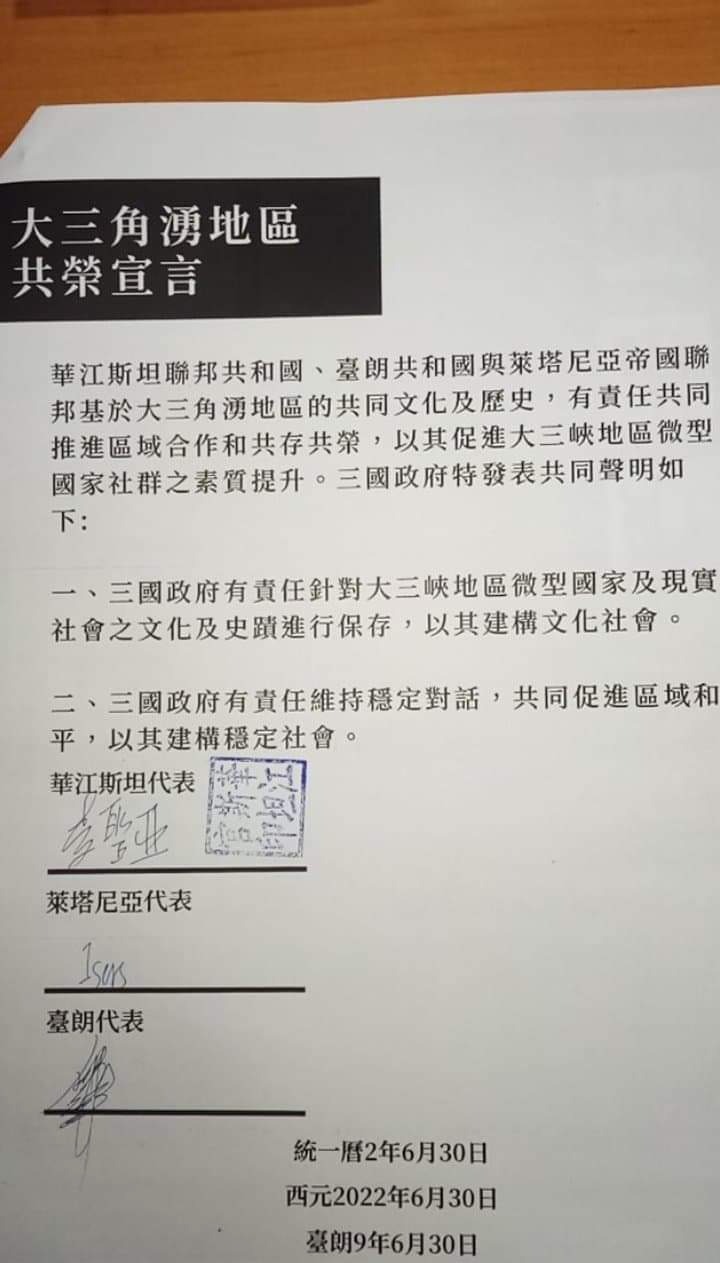 大三角湧地區
共榮宣言
華江斯坦聯邦共和國、臺朗共和國與萊塔尼亞帝國聯
邦基於大三角湧地區的共同文化及歷史，有責任共同
推進區域合作和共存共榮，以其促進大三峽地區微型
國家社群之素質提升。三國政府特發表共同聲明如
下：
一、三國政府有責任針對大三峽地區微型國家及現實
社會之文化及史蹟進行保存，以其建構文化社會。
二、三國政府有責任維持穩定對話，共同促進區域和
平，以其建構穩定社會。
華江斯坦代表
李聖亞
萊塔尼亞代表
臺朗代表
統一曆2年6月30日
西元2022年6月30日
臺朗9年6月30日